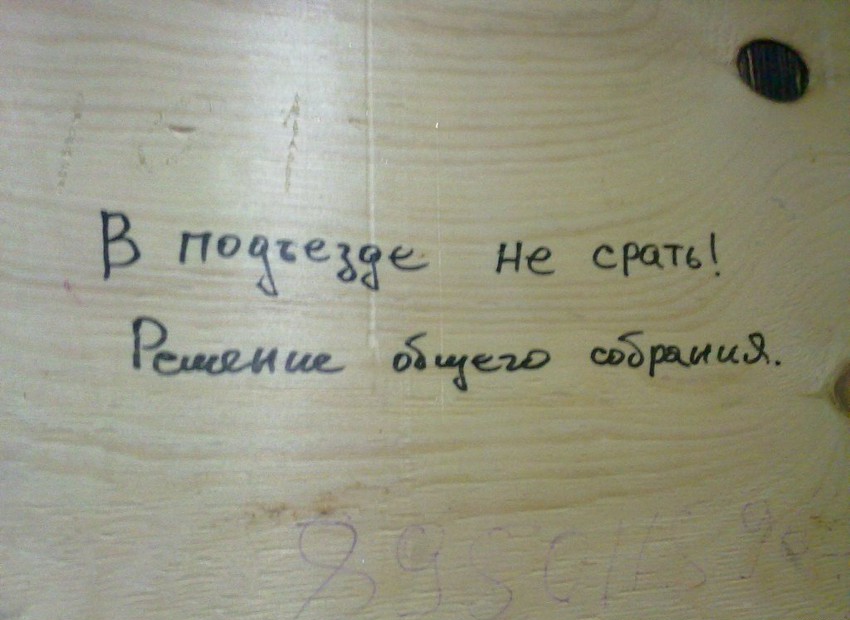 В подъезде не срать!
Решение общего собрания.